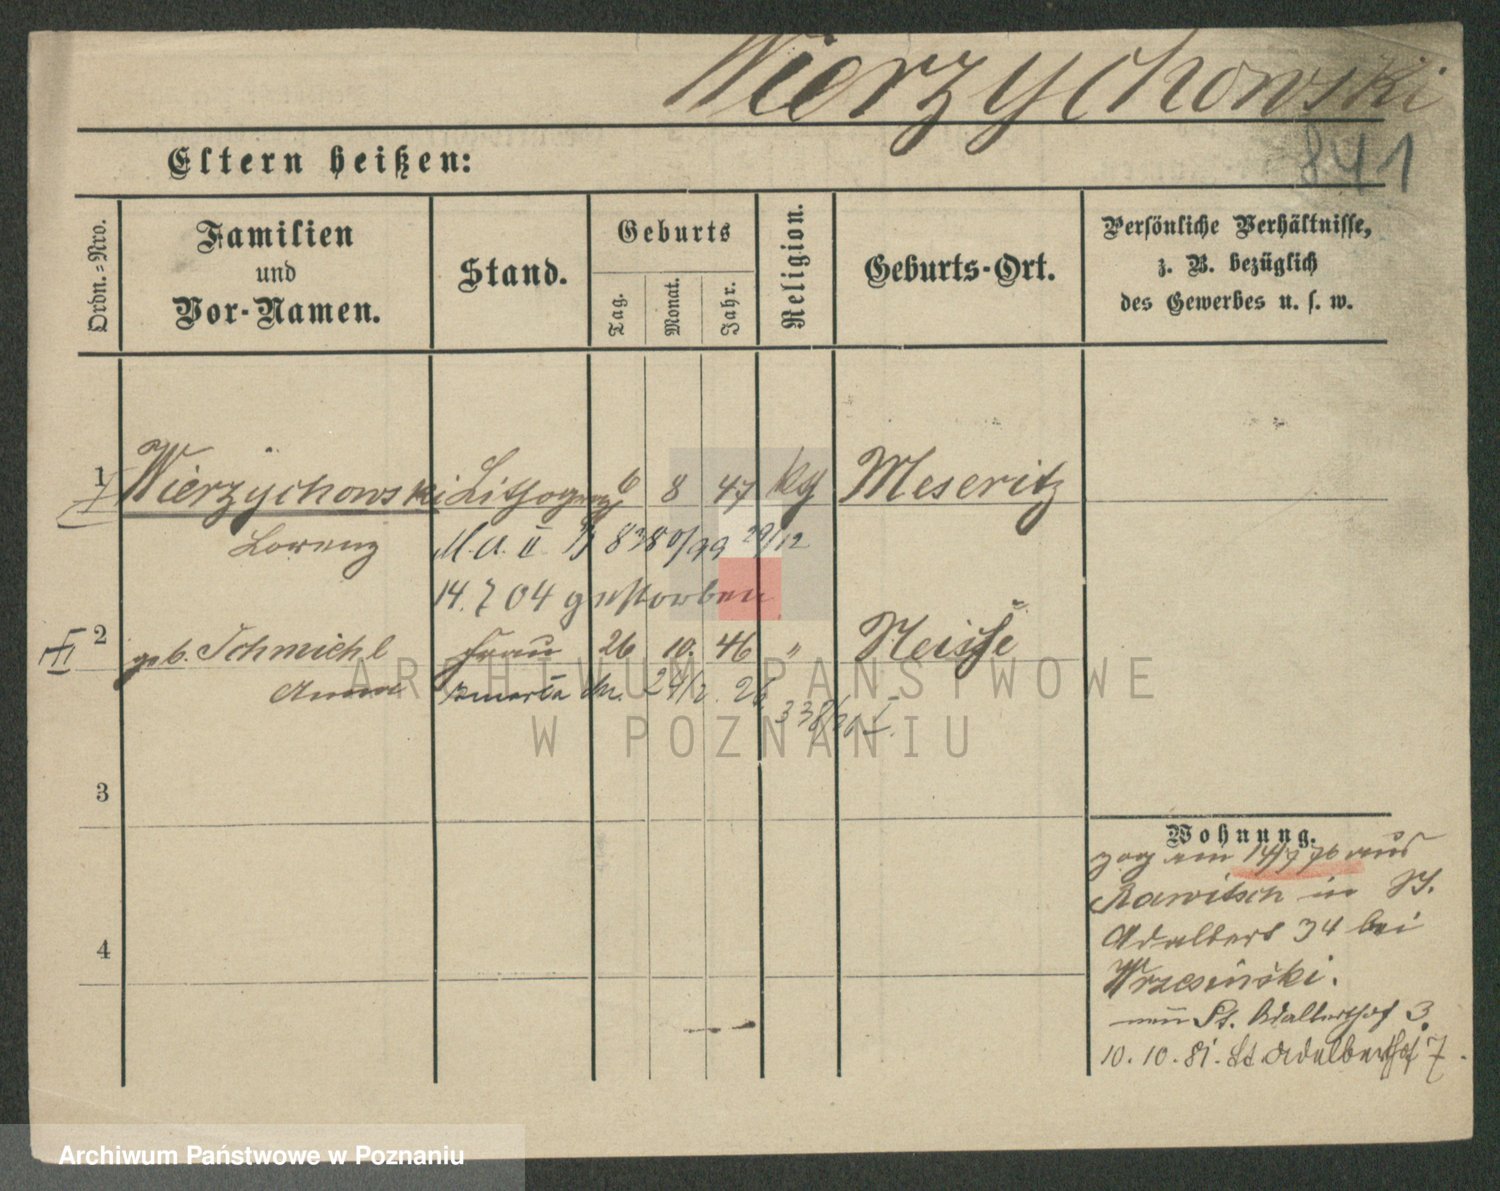 Wierzychowski
841
Eltern heißen:
Ordn.-Nro.
Familien
und
Vor-Namen.
Stand.
Geburts
Tag.
Monat.
Jahr.
Religion.
Geburts-Ort.
Persönliche Verhältnisse,
z. B. bezüglich
des Gewerbes u. s. w.
1 Wierzychowski Lithograph 6 8 47 kg Meseritz
Lorenz M. A. II 29/12
14. 7 04 gestorben
2 geb. Schmiehl Frau 26 10. 46 " Neisse
Anna zmarła
3
4
Wohnung.
zog am 14/7 76 aus
Rawitsch in St.
Adalbert 34 bei
Wrzesinski.
nun St. Adalberthof 3
10. 10. 81. St Adalberthof 7.
ARCHIWUM PAŃSTWOWE
W POZNANIU
Archiwum Państwowe w Poznaniu